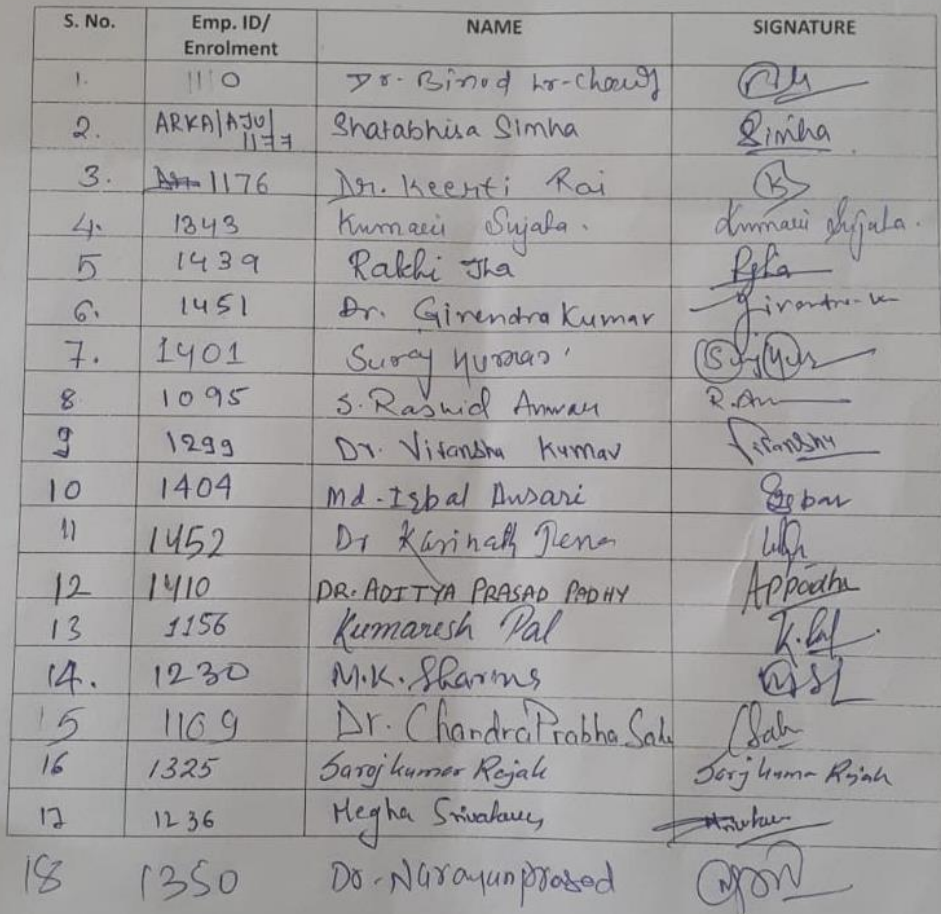 S. No. Emp. ID/ Enrolment NAME SIGNATURE
1. 1110 Dr. Binod
2. ARKA/AJU/1177 Shatabhisa Simha Simha
3. 1176 Dr. Keerti Rai K
4. 1343 Kumari Sujata. Kumari Sujata.
5 1439 Rakhi Jha RJha
6. 1451 Dr. Girendra Kumar
7. 1401 Suraj Kumar
8 1095 S. Rashid Anwar R. An
9 1299 Dr. Vitanshu Kumar Vitanshu
10 1404 Md. Iqbal Ansari Iqbal
11 1452 Dr Kasinath Jena
12 1410 DR. ADITYA PRASAD PADHY APPadhy
13 1156 Kumaresh Pal K. Pal
14. 1230 M.K. Sharma
15 1109 Dr. Chandra Prabha Sahu Sah
16 1325 Saroj kumar Rajak Saroj kumar Rajak
17 1236 Megha Srivastava
18 1350 Dr. Narayan prasad